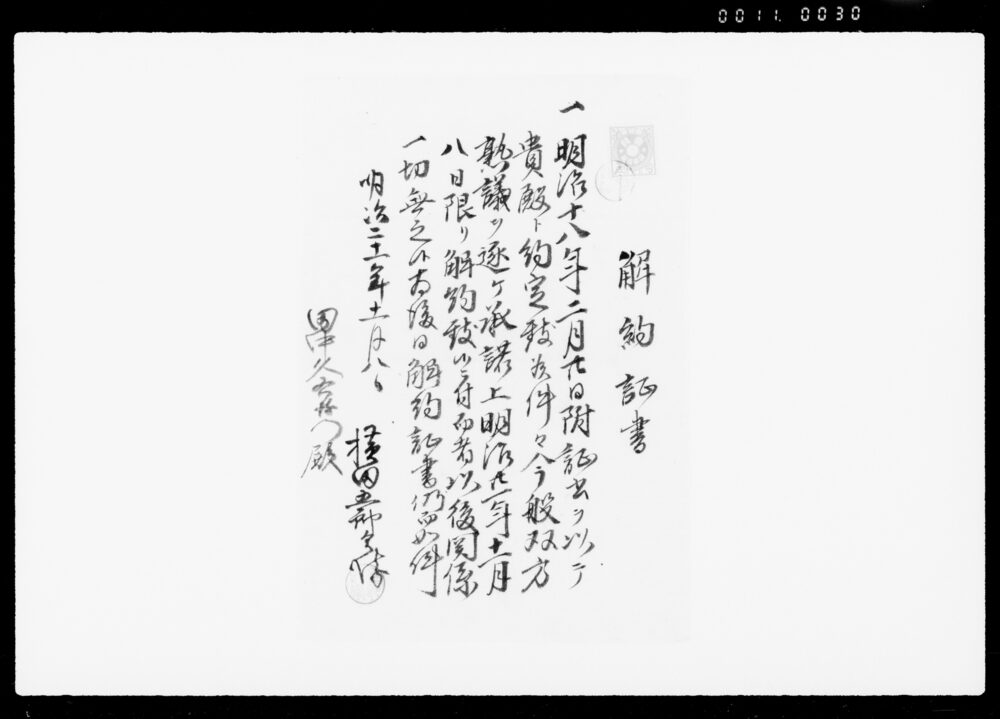 0011. 0030
解約証書
一 明治十八年二月廿日附証書ヲ以テ
貴殿ト約定致居件々今般双方
熟議ヲ遂ケ承諾上明治廿一年十一月
八日限リ解約致候ニ付而者以後関係
一切無之候為後日解約証書仍而如件
明治二十一年十一月八日
横田五郎兵衛
田中久右衛門殿